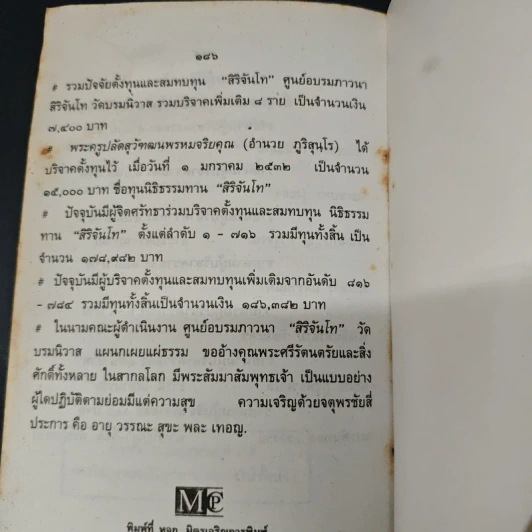 ๑๘๖
# รวมปัจจัยตั้งทุนและสมทบทุน "สิริจันโท" ศูนย์อบรมภาวนา
สิริจันโท วัดบรมนิวาส รวมบริจาคเพิ่มเติม ๘ ราย เป็นจำนวนเงิน
๗,๔๐๐ บาท
# พระครูปลัดสุวัฑฒนพรหมจริยคุณ (อำนวย ภูริสุนฺโร) ได้
บริจาคตั้งทุนไว้ เมื่อวันที่ ๑ มกราคม ๒๕๓๒ เป็นจำนวน
๑๕,๐๐๐ บาท ชื่อทุนนิธิธรรมทาน "สิริจันโท"
# ปัจจุบันมีผู้จิตศรัทธาร่วมบริจาคตั้งทุนและสมทบทุน นิธิธรรม
ทาน "สิริจันโท" ตั้งแต่ลำดับ ๑ - ๗๑๖ รวมมีทุนทั้งสิ้น เป็น
จำนวน ๑๗๘,๙๘๒ บาท
# ปัจจุบันมีผู้บริจาคตั้งทุนและสมทบทุนเพิ่มเติมจากอันดับ ๘๑๖
- ๗๘๔ รวมมีทุนทั้งสิ้นเป็นจำนวนเงิน ๑๘๖,๓๘๒ บาท
# ในนามคณะผู้ดำเนินงาน ศูนย์อบรมภาวนา "สิริจันโท" วัด
บรมนิวาส แผนกเผยแผ่ธรรม ขออ้างคุณพระศรีรัตนตรัยและสิ่ง
ศักดิ์ทั้งหลาย ในสากลโลก มีพระสัมมาสัมพุทธเจ้า เป็นแบบอย่าง
ผู้ใดปฏิบัติตามย่อมมีแต่ความสุข ความเจริญด้วยจตุพรชัยสี่
ประการ คือ อายุ วรรณะ สุขะ พละ เทอญ.
MCP
พิมพ์ที่ หจก. มิตรเจริญการพิมพ์